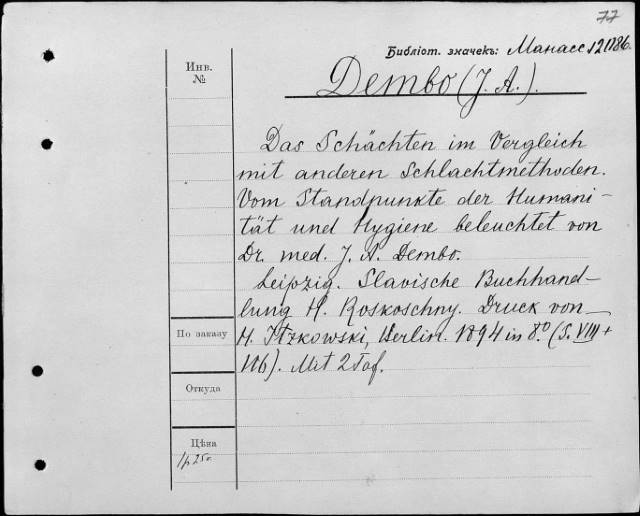 77
Библіот. значекъ: Манасс 12086.
Инв.
№
Dembo (J. A.).
Das Schächten im Vergleich
mit anderen Schlachtmethoden.
Vom Standpunkte der Humani-
tät und Hygiene beleuchtet von
Dr. med. J. A. Dembo.
Leipzig. Slavische Buchhand-
lung H. Roskoschny. Druck von
H. Itzkowski, Berlin. 1894 in 8.º (S. VIII +
116). Mit 2 Taf.
По заказу
Откуда
Цѣна
1 р 25 к